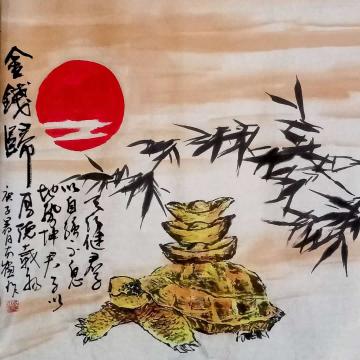 金錢歸
天行健君子
以自強不息
地勢坤君子以
厚德載物
庚子 月